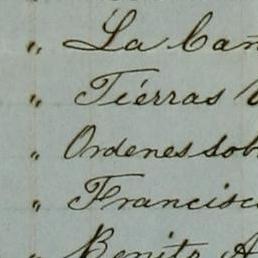 „ La Cañ
„ Tiérras
„ Ordenes sob
„ Francisc
„ Benito A